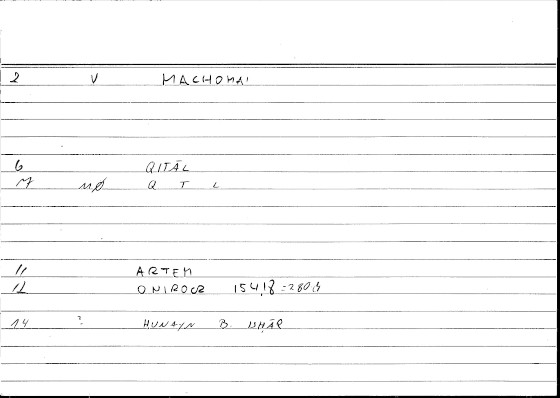 2 V MACHOMAI
6 QITĀL
7 NØ Q T L
11 ARTEM
12 ONIROCR 154,8 = 280,4
14 ? HUNAYN B. ISHĀQ